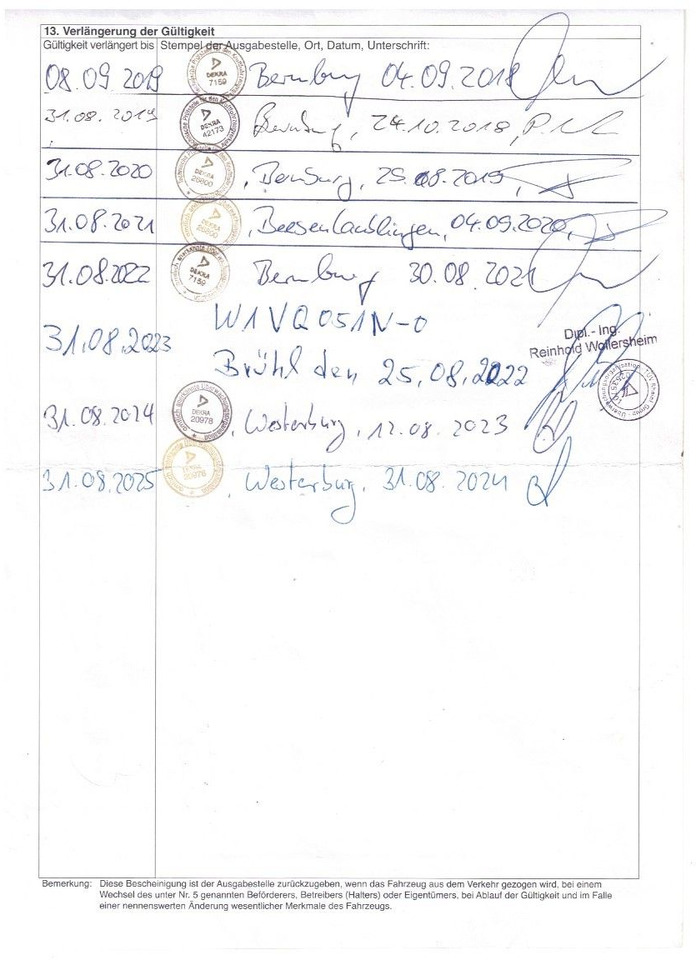 13. Verlängerung der Gültigkeit
Gültigkeit verlängert bis Stempel der Ausgabestelle, Ort, Datum, Unterschrift:
08.09 2019 DEKRA 7159 Bernburg 04.09.2018
31.08.2019 DEKRA 42173 Bernburg, 24.10.2018,
31.08.2020 DEKRA , Bernburg, 25.08.2019,
31.08.2021 , Beesenlaublingen, 04.09.2020,
31.08.2022 DEKRA 7159 Bernburg 30.08.2021
W1VQ051N-0
31.08.2023 Brühl den 25,08,2022
Dipl.- Ing.
Reinhold Wollersheim
31.08.2024 DEKRA 20978 , Westerburg, 12.08.2023
31.08.2025 DEKRA 20978 , Westerburg, 31.08.2024
Bemerkung: Diese Bescheinigung ist der Ausgabestelle zurückzugeben, wenn das Fahrzeug aus dem Verkehr gezogen wird, bei einem
Wechsel des unter Nr. 5 genannten Beförderers, Betreibers (Halters) oder Eigentümers, bei Ablauf der Gültigkeit und im Falle
einer nennenswerten Änderung wesentlicher Merkmale des Fahrzeugs.